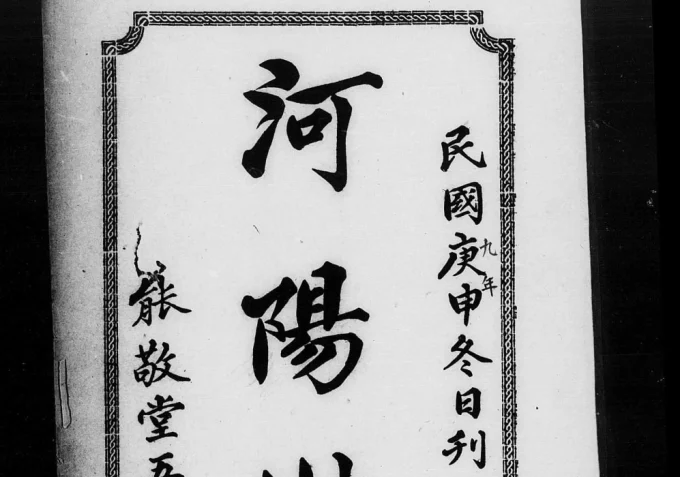 民國庚申冬日刊
九年
河陽
敬堂